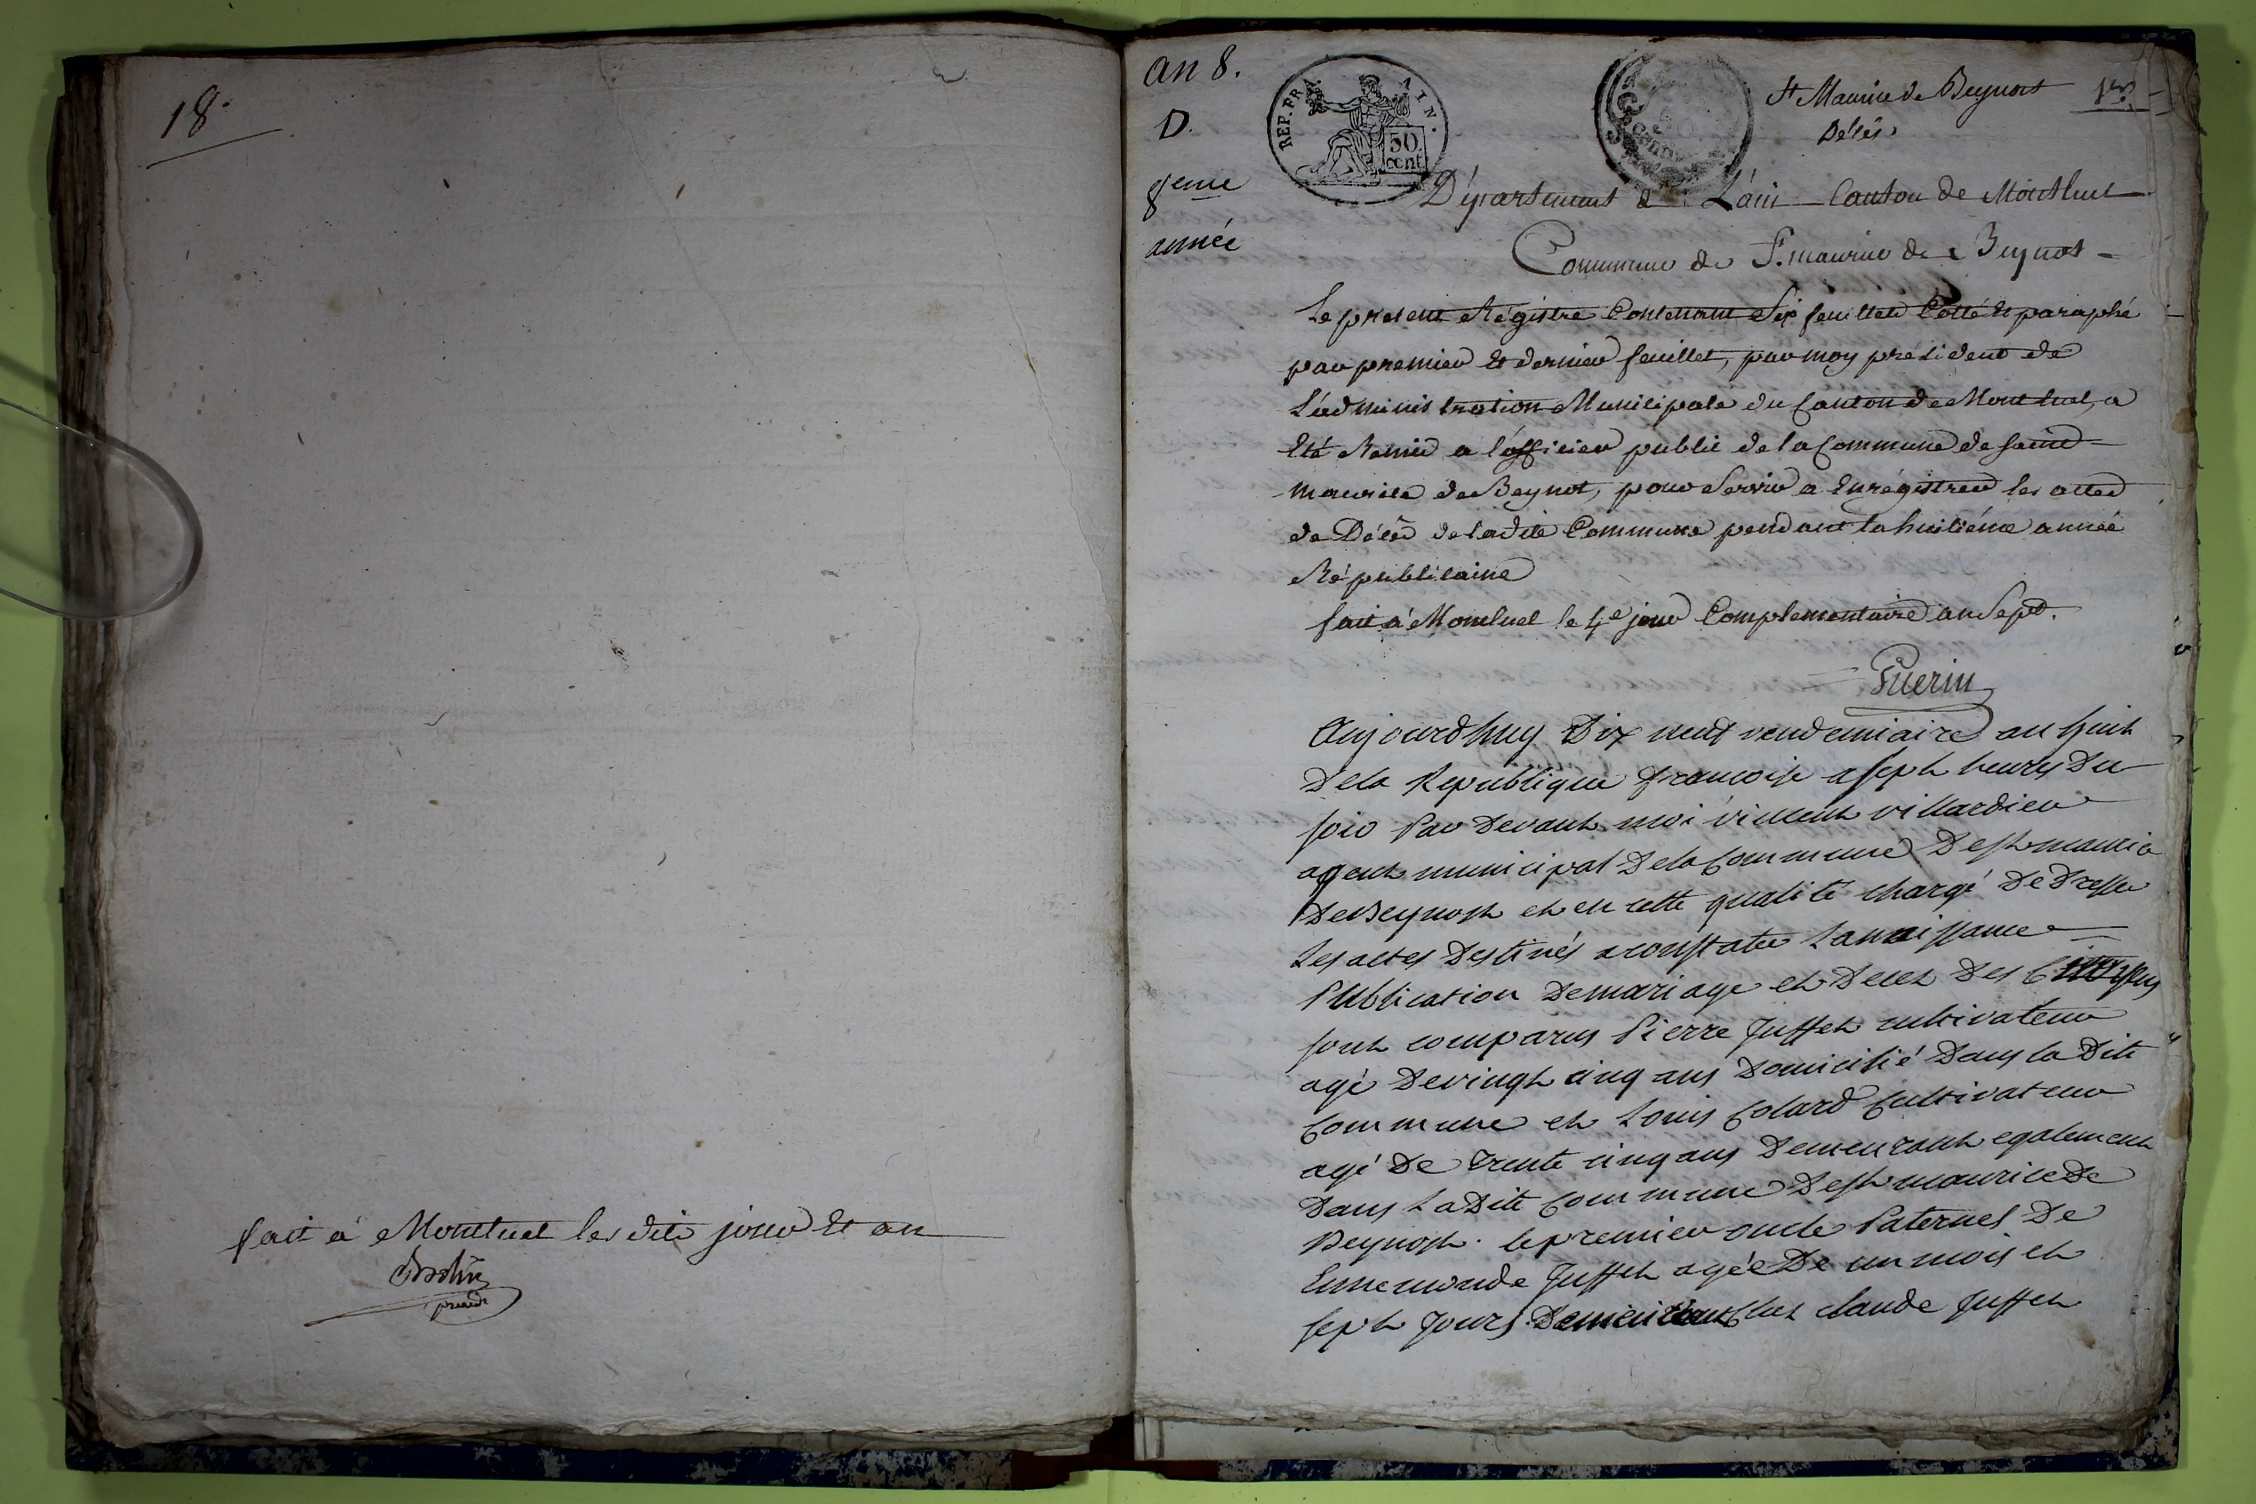 18.
fait à Montluel les dits jour Et an
an 8.
D.
8eme
année
REP. FRA. AIN.
50 cent
St Maurice de Beynost 1er
Décès
Département de L'ain Canton de Montluel
Commune de St. maurice de Beynost
Le présent Régistre Contenant Six feuillets Cotté Et paraphé
par premier Et dernier feuillet, par moy président de
L'administration Municipale du Canton de Montluel, a
Eté Remis a l'officier public de la Commune de saint
maurice de Beynot, pour Servir a Enrégistrer les actes
de Décès de ladite Commune pendant la huitiéme année
Républicaine
fait à Montluel le 4e jour Complementaire an Sept.
Guerin
Aujourdhuy Dix neuf vendemiaire an huit
Dela Republique francoise a sept heures Du
soir Par Devant moi vincent villardieu
agent municipal Dela Commune De st maurice
De Beynost et en cette qualité chargé De Dresser
Les actes Destinés a constater La naissance
Publication De mariage et Deces Des Citoyens
sont comparus Pierre Juffet cultivateur
agé De vingt cinq ans Domicilié Dans la Dite
Commune et Louis Colard Cultivateur
agé De trente cinq ans Demeurant egalement
Dans La Dite Commune De st maurice De
Beynost. le premier oncle Paternel De
Ennemonde Juffet agée De un mois et
sept Jours Demeurant Chez claude Juffet